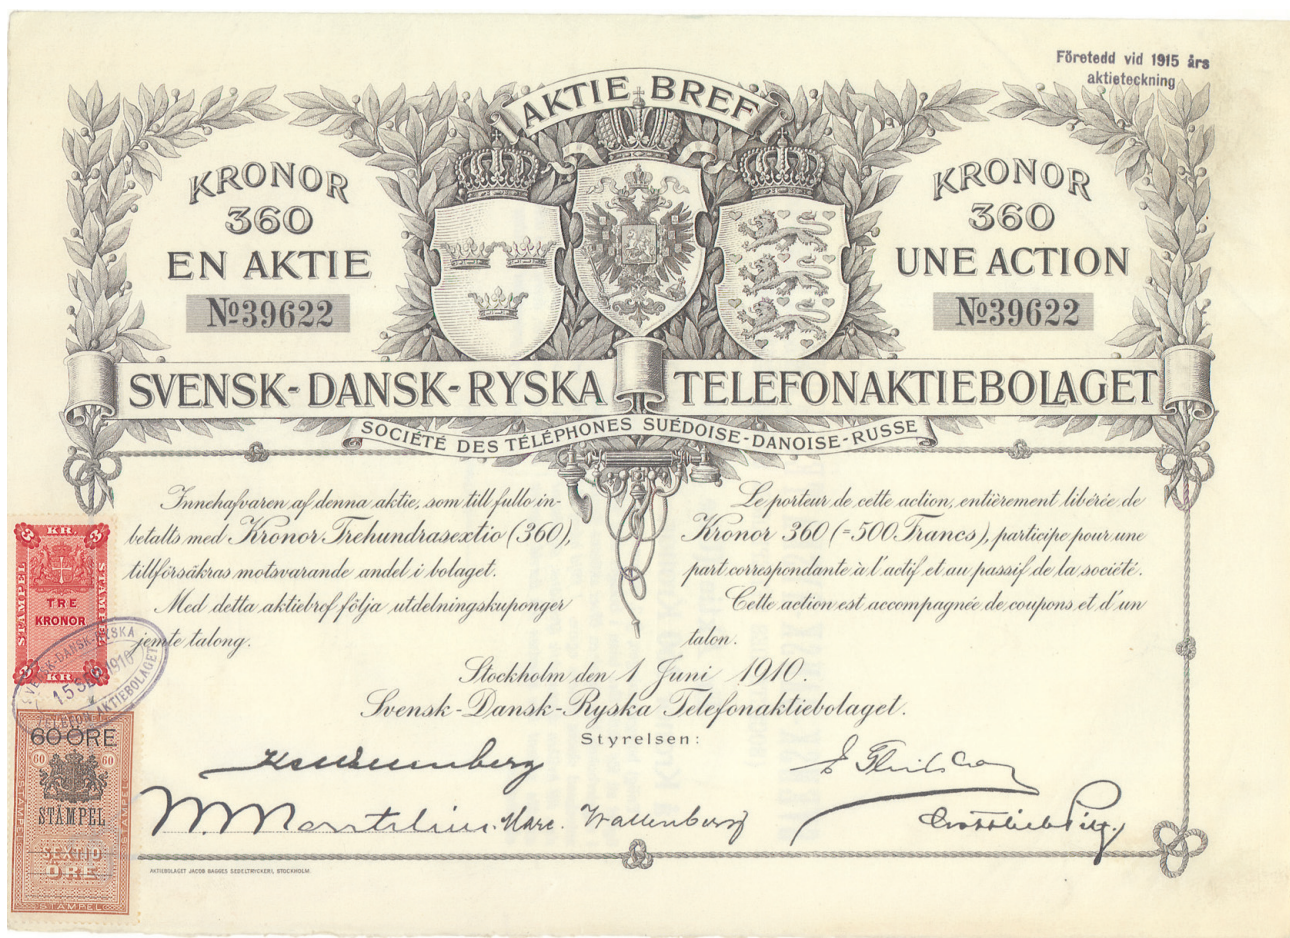 Företedd vid 1915 års
aktieteckning
AKTIE BREF
KRONOR
360
EN AKTIE
No 39622
KRONOR
360
UNE ACTION
No 39622
SVENSK-DANSK-RYSKA TELEFONAKTIEBOLAGET
SOCIÉTÉ DES TÉLÉPHONES SUÉDOISE-DANOISE-RUSSE
Innehafvaren af denna aktie, som till fullo in-
betalts med Kronor Trehundrasextio (360),
tillförsäkras motsvarande andel i bolaget.
Med detta aktiebref följa utdelningskuponger
jemte talong.
Le porteur de cette action, entièrement libérée de
Kronor 360 (= 500 Francs), participe pour une
part correspondante à l'actif et au passif de la société.
Cette action est accompagnée de coupons et d'un
talon.
Stockholm den 1 Juni 1910.
Svensk-Dansk-Ryska Telefonaktiebolaget.
Styrelsen:
Marc. Wallenberg
3 KR. 3
STÄMPEL
STÄMPEL
TRE
KRONOR
KR.
SVENSK-DANSK-RYSKA
TELEFON AKTIEBOLAGET
60 ÖRE
60 60
STÄMPEL
SEXTIO
ÖRE
STÄMPEL
AKTIEBOLAGET JACOB BAGGES SEDELTRYCKERI, STOCKHOLM.